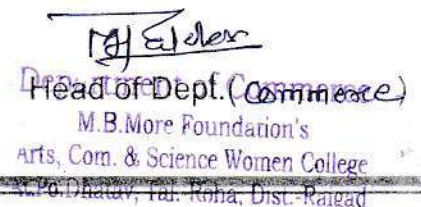 Department of Commerce
Head of Dept. (Commerce)
M.B.More Foundation's
Arts, Com. & Science Women College
At.Po.Dhatav, Tal. Roha, Dist.-Raigad